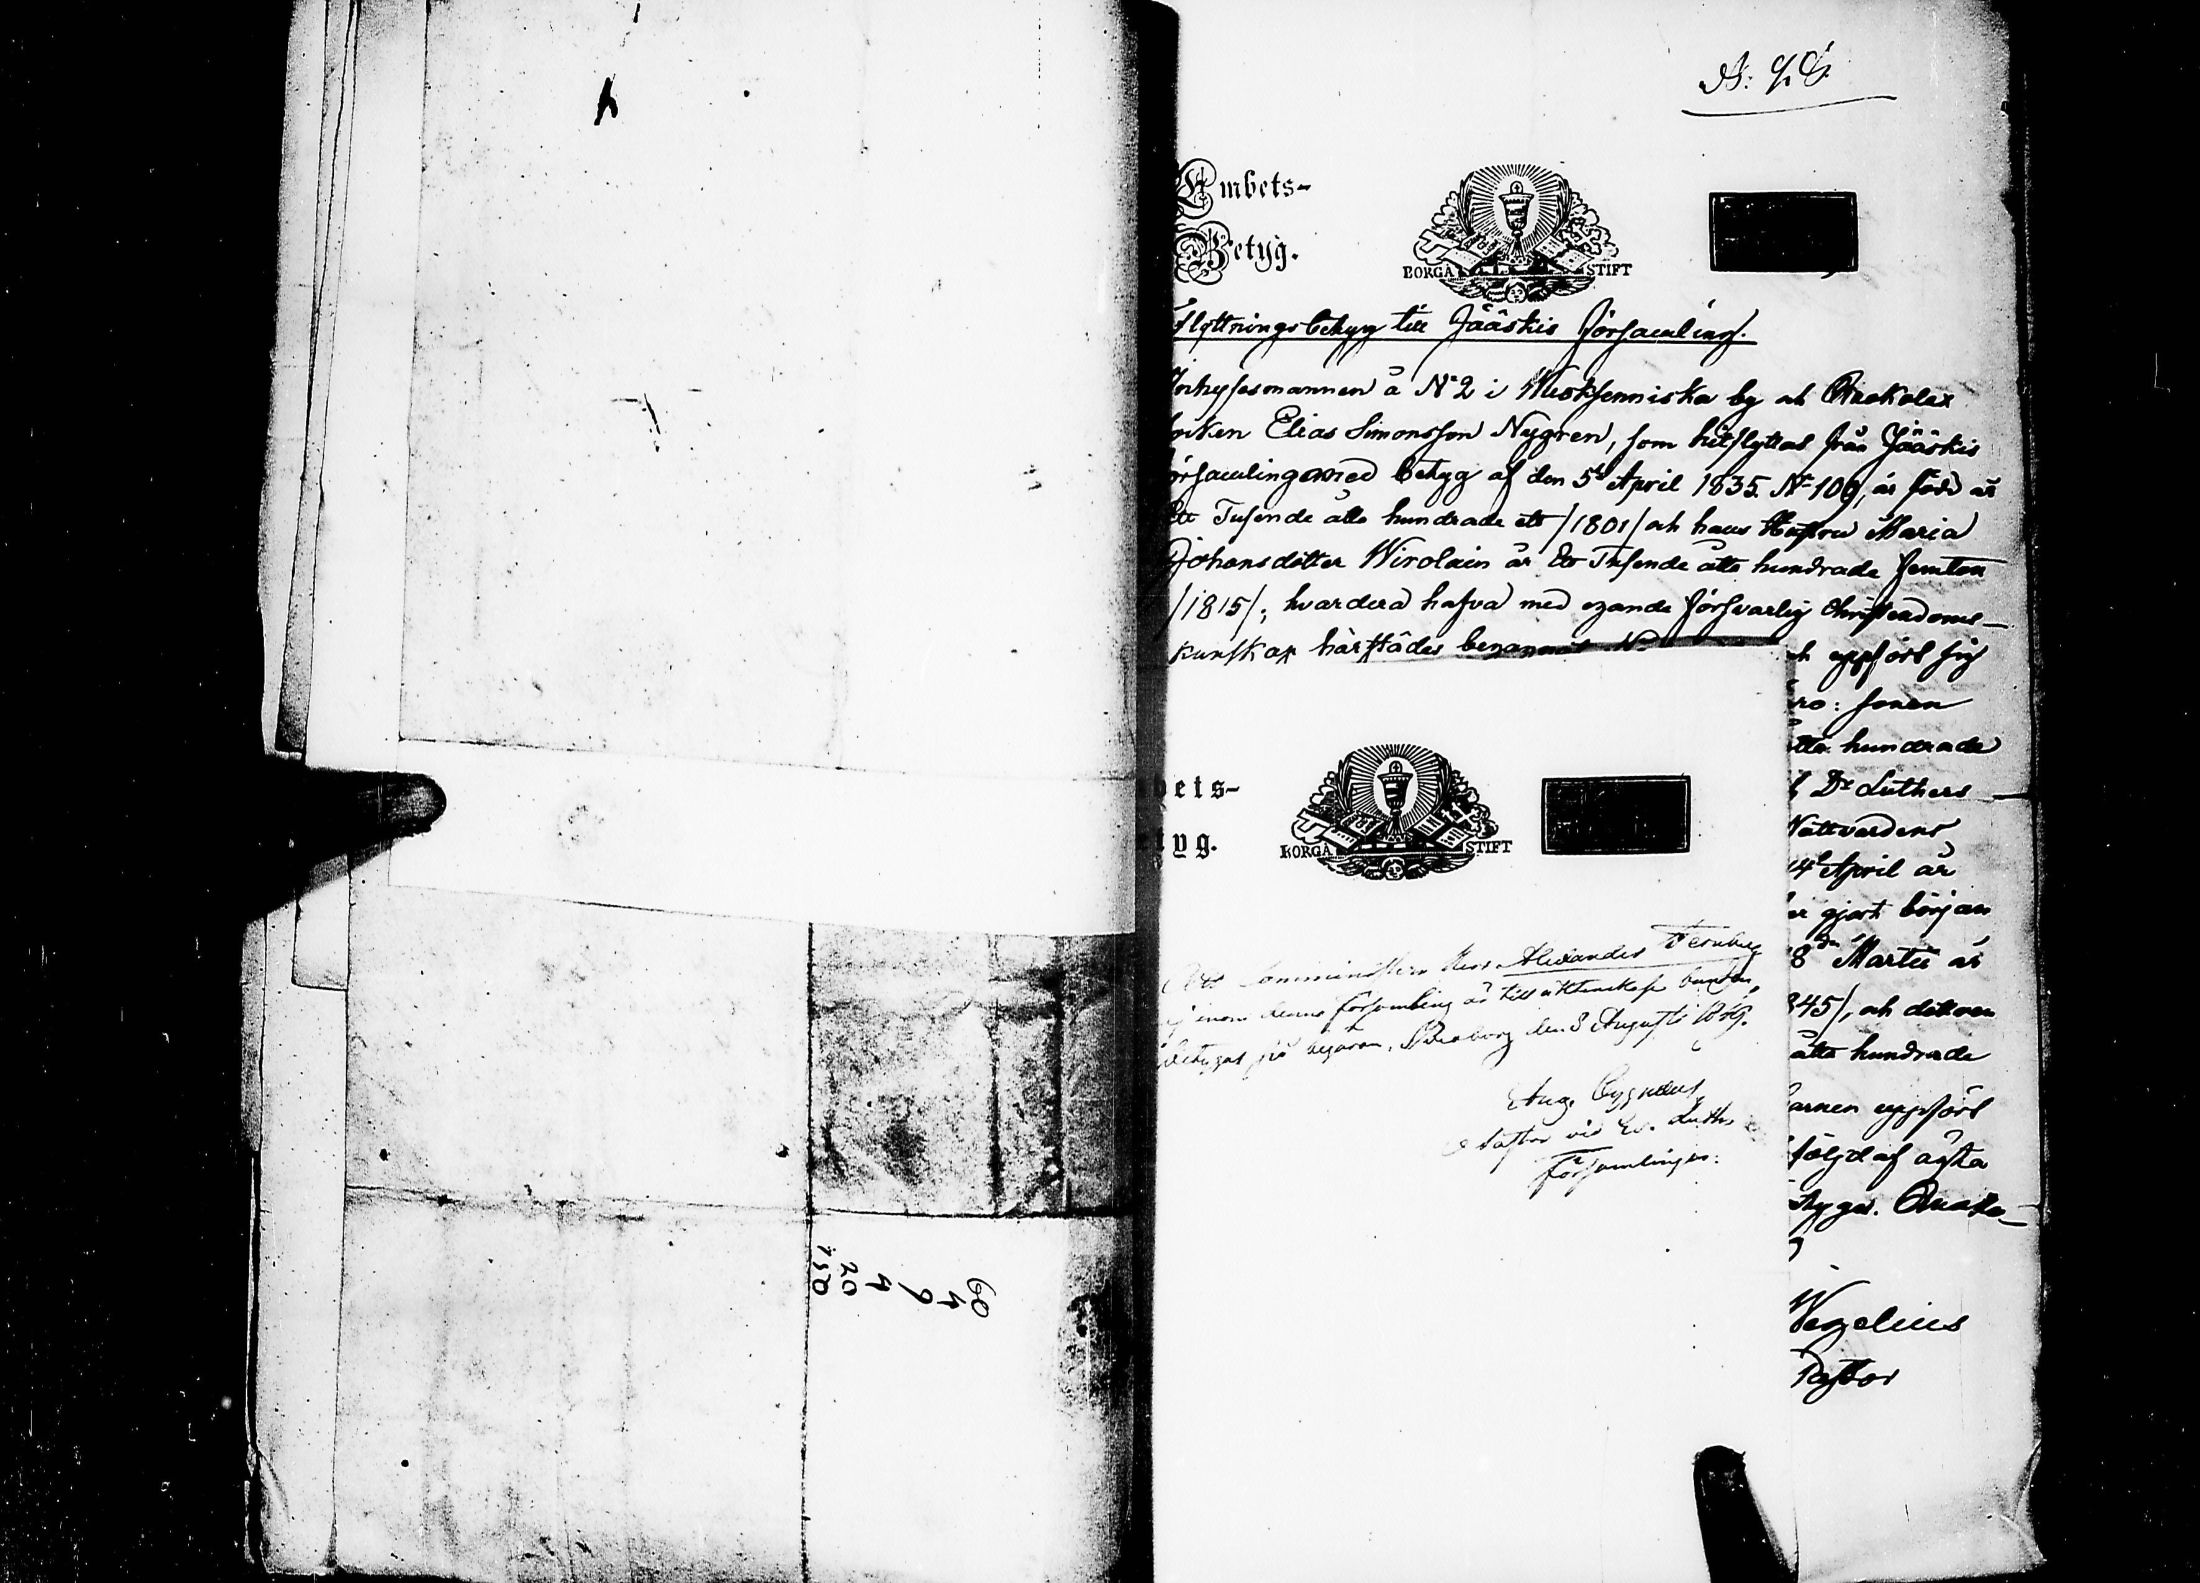 Embets-
Betyg.
BORGÅ STIFT
flyttningsbetyg till Jääskis församling.
Inhysesmannen å N:o 2 i Weskenniska by och Ruokolax
socken Elias Simonsson Nygren, som hitflyttat från Jääskis
församlingen med betyg af den 5te April 1835 No 109, är född år
Ett Tusende åtta hundrade ett /1801/ och hans Hustru Maria
Johansdotter Wirolain år Ett Tusende åtta hundrade femton
/1815/; hvardera hafva med egande försvarlig Christendoms-
kunskap härstädes begagnat N
ch uppfört sig
ro: sonen
åtta hundrade
Dr Luthers
Nattvardens
14de April år
er gjort början
8de Martii år
845/, och dottren
åtta hundrade
arnen uppfört
följd af ägta
tygas. Ruoko-
Wegelius
Pastor
bets-
tyg.
BORGÅ STIFT
Att Comministern Herr Alexander
inom denna församling är till äktenskap bunden,
betygas på begäran. den 8 Augusti
Aug. Cygnæus,
Pastor vid Ev. Luth.
Församlingen.
60
4
9
4
20
150